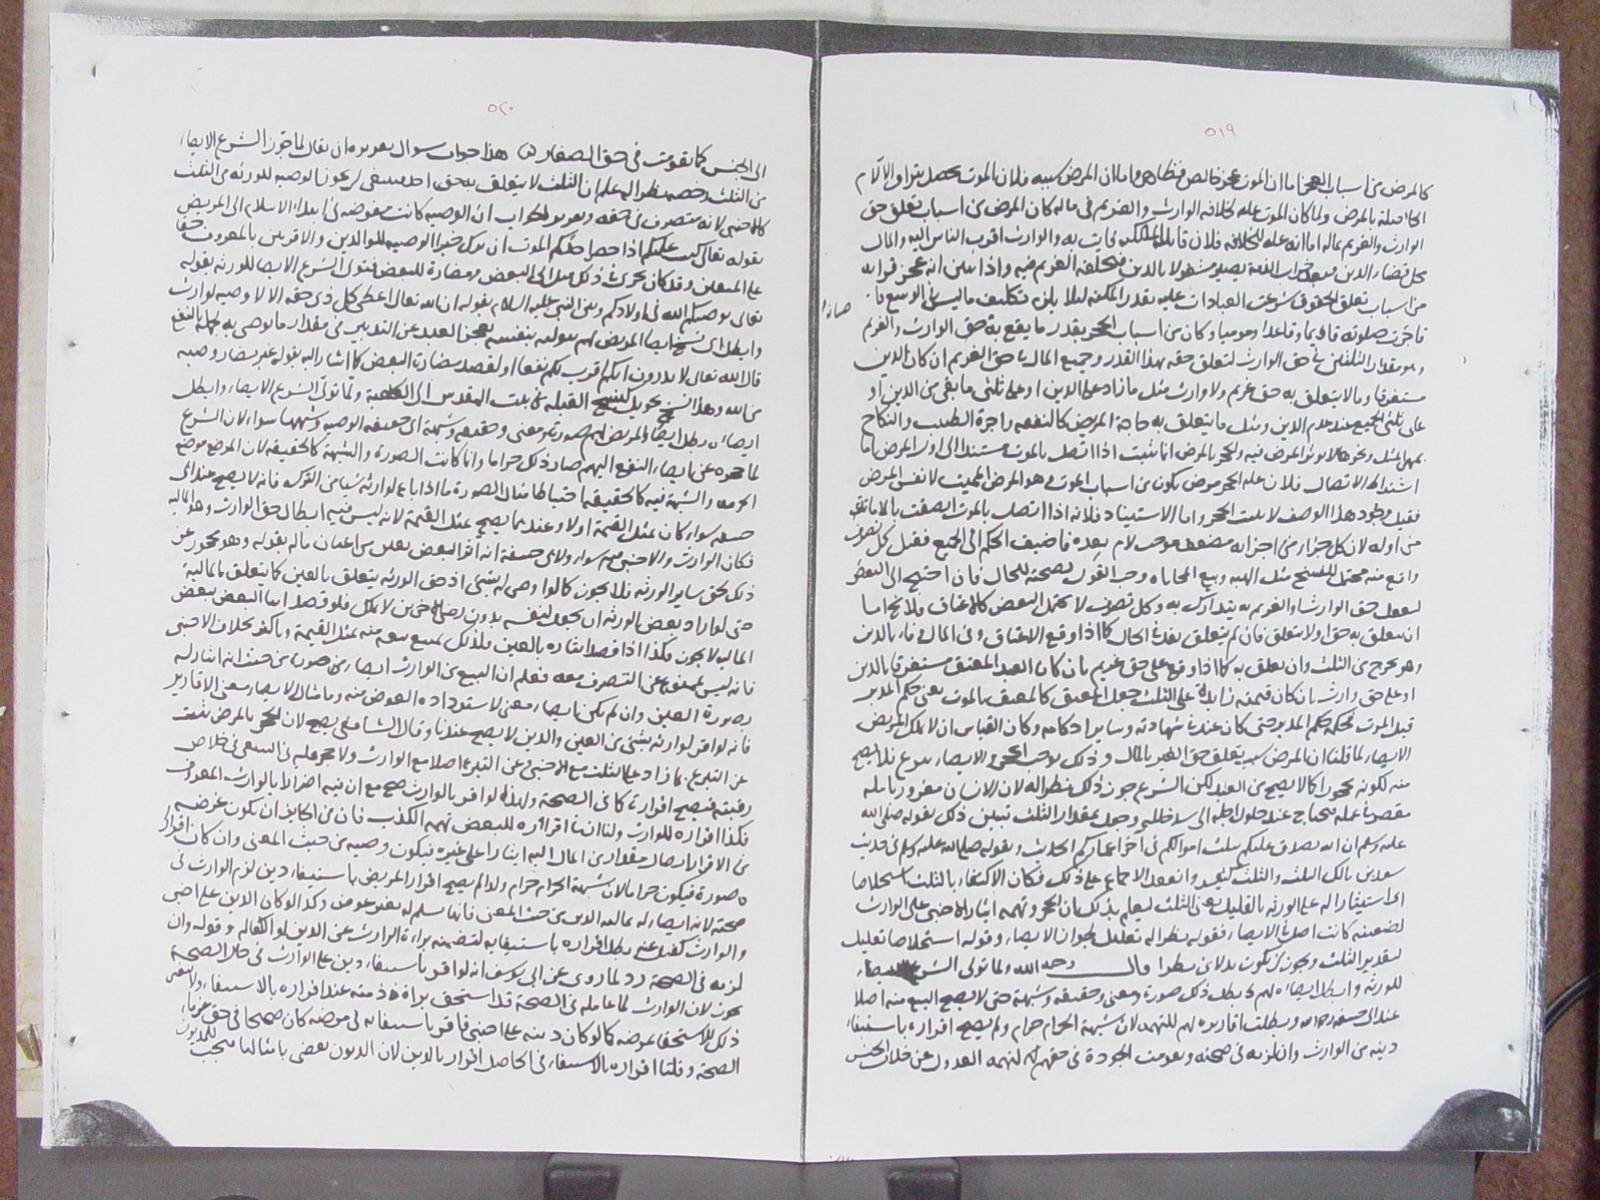 ٥١٩
كالمرض من اسباب العجز اما ان الموت عجز خالص فظاهر واما ان المرض سببه فلان الموت يحصل بترادف الآلام
الحاصلة بالمرض ولما كان الموت علة لخلافة الوارث والغريم في ماله كان المرض من اسباب تعلق حق
الوارث والغريم بماله اما انه علة للخلافة فلان قابلية الملك بالموت والوارث اقرب الناس اليه والمال
محل قضاء الدين فبعد خراب الذمة يصير مشغولا بالدين فيخلفه الغريم فيه واذا تبين انه عجز
من اسباب تعلق الحقوق شرعت العبادات عليه بقدر المكنة لئلا يلزم تكليف ما ليس في الوسع
صيانة
وهو مقدار الثلثين في حق الوارث لتعلق حقه بهذا القدر وجميع المال في حق الغريم ان كان الدين
مستغرقا وما لا يتعلق به حق غريم ولا وارث مثل ما زاد على الدين او على ثلثي ما بقي من الدين او
على ثلثي الجميع عند عدم الدين ومثل ما يتعلق به حاجة المريض كالنفقة واجرة الطبيب والنكاح
بمهر المثل ونحوها لا يؤثر المرض فيه والحجر بالمرض انما يثبت اذا اتصل بالموت مستندا الى اول المرض اما
اشتراط الاتصال فلان علة الحجر مرض يكون من اسباب الموت وهو المرض المميت لا نفس المرض
فقبل وجود هذا الوصف لا يثبت الحجر واما الاستناد فلانه اذا اتصل بالموت اتصف بالاماتة
من اوله لان كل جزء من اجزائه مضعف موجب لالم بعده فاضيف الحكم الى الجميع فقيل كل تصرف
واقع منه محتمل للفسخ مثل الهبة وبيع المحاباة وجب القول بصحته للحال فان احتيج الى النقض
لتعلق حق الوارث او الغريم به يتدارك به وكل تصرف لا يحتمل النقض كالاعتاق فلا يخ اما
ان يتعلق به حق او لا يتعلق فان لم يتعلق نفذ في الحال كما اذا وقع الاعتاق وفي المال وفاء بالدين
وهو يخرج من الثلث وان تعلق به كما اذا وقع على حق غريم بان كان العبد المعتق مستغرقا بالدين
او على حق وارث بان كان قيمته زايدة على الثلث جعل المعتق كالمعلق بالموت يعني حكم المدبر
قبل الموت فحكمه حكم المدبر حتى كان عبدا في شهادته وساير احكامه وكان القياس ان لا يملك المريض
الايصاء لما قلنا ان المرض سبب تعلق حق الغير بالمال وذلك يوجب الحجر والايصاء تبرع فلا يصح
منه لكونه محجورا كما لا يصح من العبد لكن الشرع جوز ذلك نظرا له لان الانسان مغرور بامله
مقصر في عمله فيحتاج عند حلول اجله الى تدارك خلله وجعل بمقدار الثلث تبين ذلك بقوله صلى الله
عليه وسلم ان الله تصدق عليكم بثلث اموالكم في آخر اعماركم الحديث وبقوله صلى الله عليه وسلم في حديث
سعد بن مالك الثلث والثلث كثير وانعقد الاجماع على ذلك فكان الاكتفاء بالثلث استخلاصا
اي استيثارا له على الورثة بالقليل يعني الثلث ليعلم بذلك ان الحجر وتهمة ايثار الاجنبي على الوارث
لضغينة كانت اصل في الايصاء فقوله نظرا له تعليل لجواز الايصاء وقوله استخلاصا تعليل
لتقدير الثلث ويجوز ان يكون بدلا من نظرا قال رحمه الله ولما تولى الشرع الايصاء
للورثة وابطل ايصاءه لهم بطل ذلك صورة ومعنى وحقيقة وشبهة حتى لا يصح البيع منه اصلا
عند ابي حنيفة رحمه الله وبطلت اقاريره لهم للتهمة لان شبهة الحرام حرام ولم يصح اقراره باستيفاء
دينه من الوارث وان لزمه في صحته وتقومت الجودة في حقهم لتهمة العدول عن خلاف الجنس
٥٢٠
الى الجنس كما تقومت في حق الصغار هذا جواب سوال تقديره ان يقال لما جوز الشرع الايصاء
من الثلث رخصة نظرا له علم ان الثلث لا يتعلق به حق احد فينبغي ان يجوز الوصية للورثة من الثلث
كالاجنبي لانه متصرف في حقه وتقرير الجواب ان الوصية كانت مفوضة في ابتداء الاسلام الى المريض
بقوله تعالى كتب عليكم اذا حضر احدكم الموت ان ترك خيرا الوصية للوالدين والاقربين بالمعروف حقا
على المتقين وقد كان يجري في ذلك ميل الى البعض ومضارة للبعض فتولى الشرع الايصاء للورثة بقوله
تعالى يوصيكم الله في اولادكم وبين النبي عليه السلام بقوله ان الله تعالى اعطى كل ذي حق حقه الا لا وصية لوارث
وابطل اي نسخ ايصاء المريض لهم بتوليه بنفسه لعجز العبد عن التدبير في مقدار ما يوصي به لجهله بالنفع
قال الله تعالى لا تدرون ايهم اقرب لكم نفعا او لقصد مضارة البعض كما اشار اليه بقوله غير مضار وصية
من الله وهذا النسخ تحويل كنسخ القبلة من بيت المقدس الى الكعبة ولما تولى الشرع الايصاء وابطل
ايصاءه بطل ايصاء المريض لهم صورة ومعنى وحقيقة وشبهة اي حقيقة الوصية وشبهتها سواء لان الشرع
لما حجره عن ايصال النفع اليهم صار ذلك حراما وانما كانت الصورة والشبهة كالحقيقة لان الموضع موضع
الحرمة والشبهة فيه كالحقيقة احتياطا مثال الصورة ما اذا باع لوارثه شيئا من التركة فانه لا يصح عند ابي
حنيفة سواء كان بمثل القيمة او لا وعندهما يصح بمثل القيمة لانه ليس فيه ابطال حق الوارث وهو المالية
فكان الوارث والاجنبي فيه سواء ولابي حنيفة انه آثر البعض بعين من اعيان ماله بقوله وهو محجور عن
ذلك بحق ساير الورثة فلا يجوز كما لو اوصى له بشئ اذ حق الورثة يتعلق بالعين كما يتعلق بالمالية
حتى لو اراد بعض الورثة ان يجعل لنفسه بدون رضا الآخرين لا يملك فلو قصد ايثار البعض ببعض
المالية لا يجوز فكذا اذا قصد ايثاره بالعين فلذلك يمنع بيعه منه بمثل القيمة وباكثر بخلاف الاجنبي
فانه ليس بممنوع عن التصرف معه فعلم ان البيع من الوارث ايصاء من صورة من حيث انه ايثار له
بصورة العين وان لم يكن ايصاء معنى لاسترداده العوض منه ومثال الايصاء معنى الاقارير
فانه لو اقر لوارثه بشئ من العين والدين لا يصح عندنا وقال الشافعي يصح لان الحجر بالمرض يثبت
عن التبرع بما زاد على الثلث مع الاجنبي وعن التبرع اصلا مع الوارث ولا حجر عليه في السعي في خلاص
رقبته فيصح اقراره كما في الصحة ولهذا لو اقر بالوارث صح مع ان فيه اضرارا بالوارث المعروف
فكذا اقراره للوارث ولنا ان في اقراره للبعض تهمة الكذب فان من الجايز ان يكون غرضه
من الاقرار ايصال مقدار من المال اليه ايثارا على غيره فيكون وصية من حيث المعنى وان كان اقرارا
صورة فيكون حراما لان شبهة الحرام حرام ولذا لم يصح اقرار المريض باستيفاء دين لزم الوارث في
صحته لانه ايصاء له بمالية الدين من حيث المعنى فانها تسلم له بغير عوض وكذا لو كان الدين على اجنبي
والوارث كفيل عنه بطل اقراره باستيفائه لتضمنه براءة الوارث عن الدين او الكفالة وقوله وان
لزمه في الصحة رد لما روي عن ابي يوسف انه لو اقر باستيفاء دين على الوارث في حال الصحة
يجوز لان الوارث لما عامله في الصحة قد استحق براءة ذمته عند اقراره بالاستيفاء ولا يتغير
ذلك الاستحقاق بمرضه كما لو كان دينه على اجنبي فاقر باستيفائه في مرضه كان صحيحا في حق غرماء
الصحة وقلنا اقراره بالاستيفاء في الحاصل اقرار بالدين لان الديون تقضى بامثالها فيجب للمديون